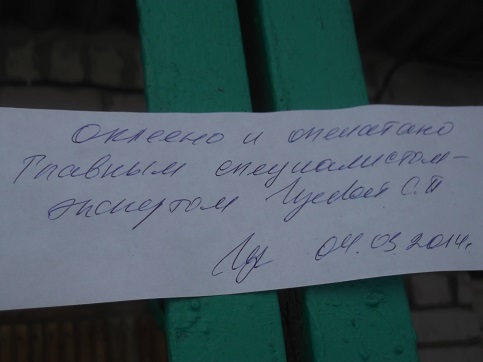 Оклеено и опечатано
Главным специалистом-
экспертом Гусевой С.П
04.03.2014г.